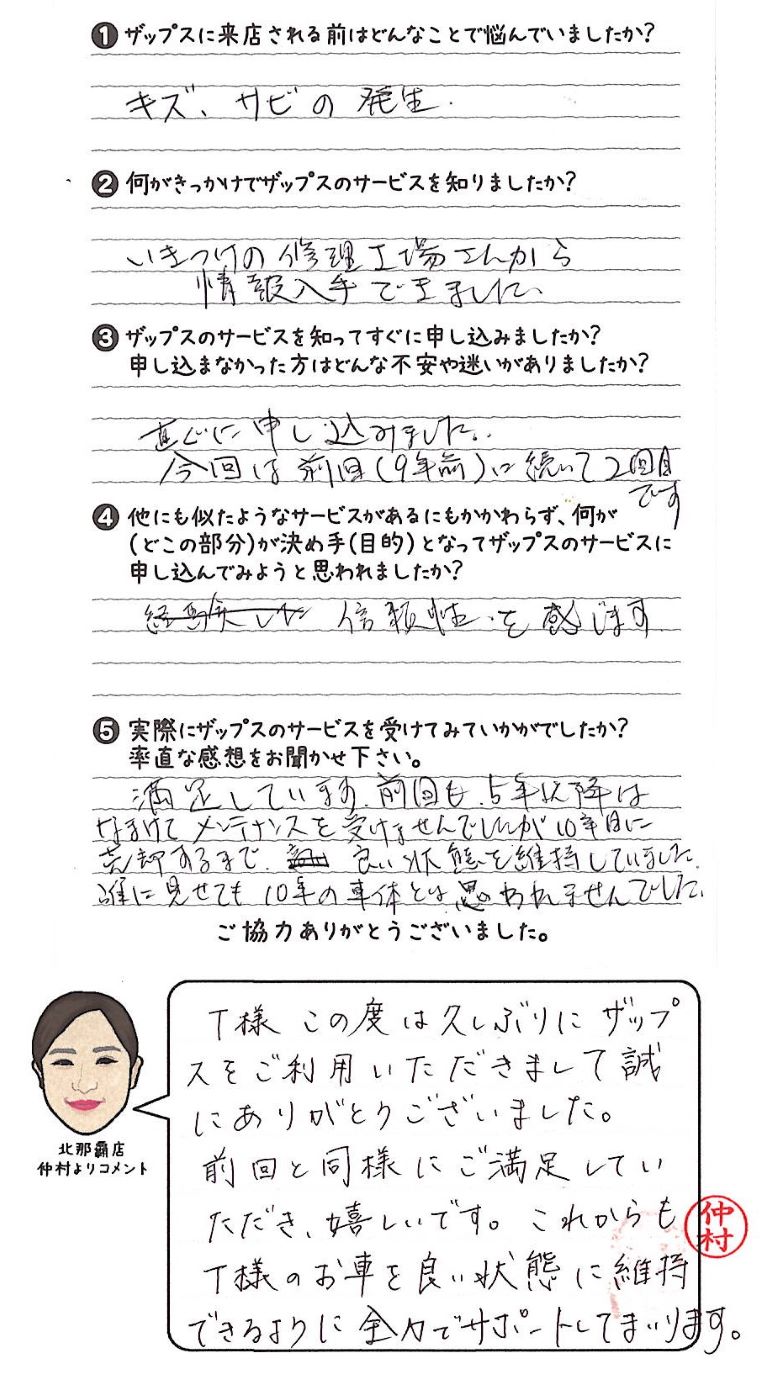 ❶ ザップスに来店される前はどんなことで悩んでいましたか?
キズ、サビの発生.
❷ 何がきっかけでザップスのサービスを知りましたか?
いきつけの修理工場さんから
情報入手できました.
❸ ザップスのサービスを知ってすぐに申し込みましたか?
申し込まなかった方はどんな不安や迷いがありましたか?
直ぐに申し込みました..
今回は前回(9年前)に続いて2回目
です
❹ 他にも似たようなサービスがあるにもかかわらず、何が
(どこの部分)が決め手(目的)となってザップスのサービスに
申し込んでみようと思われましたか?
信頼性.を感じます
❺ 実際にザップスのサービスを受けてみていかがでしたか?
率直な感想をお聞かせ下さい。
満足しています.前回も.5年以降は
なまけてメンテナンスを受けませんでしたが10年目に
売却するまで. 良い状態を維持していました.
誰に見せても10年の車体とは思われませんでした.
ご協力ありがとうございました。
T様 この度は久しぶりにザップ
スをご利用いただきまして誠
にありがとうございました。
前回と同様にご満足してい
ただき、嬉しいです。これからも
T様のお車を良い状態に維持
できるように全力でサポートしてまいります。
北那覇店
仲村よりコメント
仲村